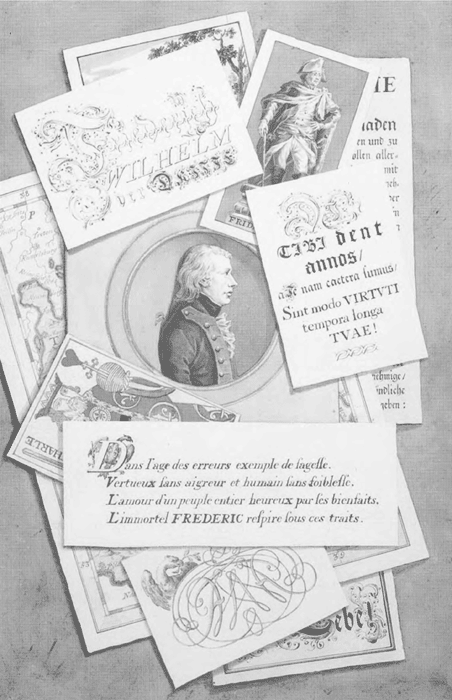 Friedrich
WILHELM
DER DRITTE
IE
en und zu
ollen aller-
mit
DI
TIBI dent
annos/
a Te nam caetera sumus/
Sint modo VIRTVTI
tempora longa
TVAE!
CHARLE
Dans l'age des erreurs exemple de sagesse.
Vertueux sans aigreur et humain sans foiblesse.
L'amour d'un peuple entier heureux par ses bienfaits.
L'immortel FREDERIC respire sous ces traits.
Lebe!